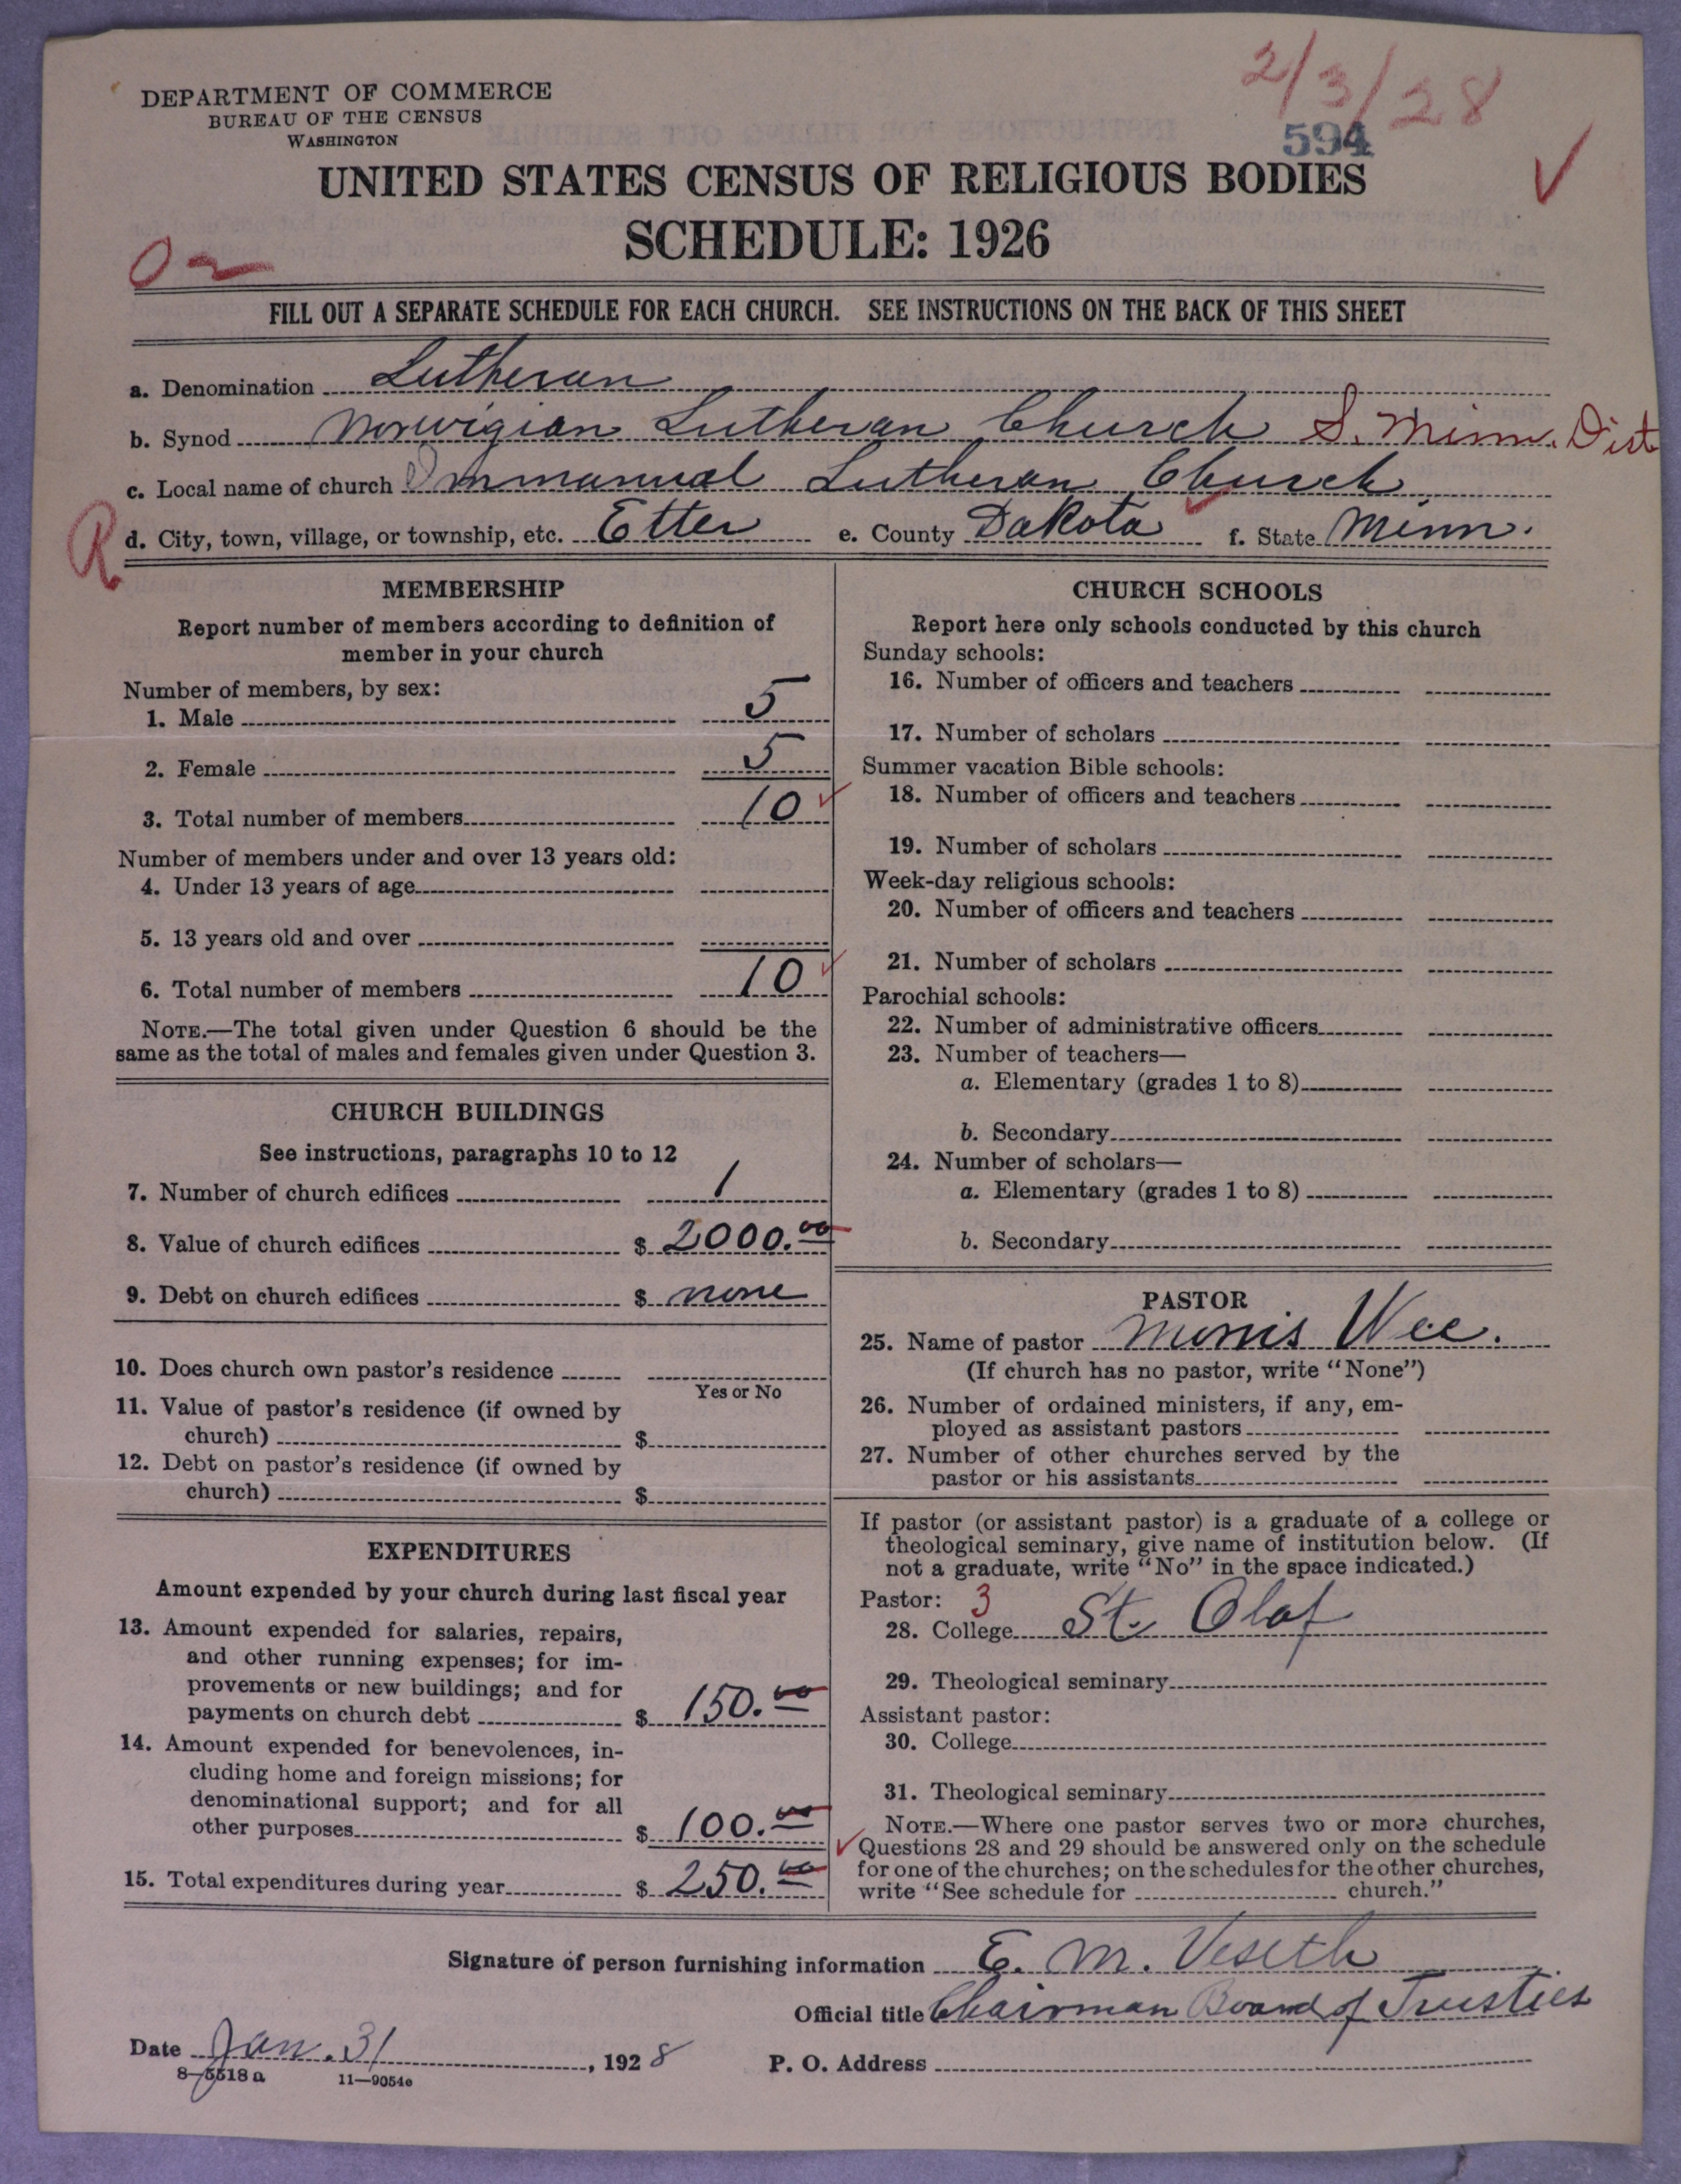 2/3/28
594
DEPARTMENT OF COMMERCE
BUREAU OF THE CENSUS
WASHINGTON
UNITED STATES CENSUS OF RELIGIOUS BODIES
SCHEDULE: 1926
FILL OUT A SEPARATE SCHEDULE FOR EACH CHURCH. SEE INSTRUCTIONS ON THE BACK OF THIS SHEET
a. Denomination Lutheran
b. Synod Norwigian Lutheran Church S. Minn. Dist
c. Local name of church Immanual Lutheran Church
R
d. City, town, village, or township, etc. Etter e. County Dakota f. State Minn.
MEMBERSHIP
Report number of members according to definition of
member in your church
Number of members, by sex:
1. Male 5
2. Female 5
3. Total number of members 10
Number of members under and over 13 years old:
4. Under 13 years of age
5. 13 years old and over
6. Total number of members 10
NOTE.—The total given under Question 6 should be the
same as the total of males and females given under Question 3.
CHURCH BUILDINGS
See instructions, paragraphs 10 to 12
7. Number of church edifices 1
8. Value of church edifices $ 2000.00
9. Debt on church edifices $ none
10. Does church own pastor's residence
Yes or No
11. Value of pastor's residence (if owned by
church) $
12. Debt on pastor's residence (if owned by
church) $
EXPENDITURES
Amount expended by your church during last fiscal year
13. Amount expended for salaries, repairs,
and other running expenses; for im-
provements or new buildings; and for
payments on church debt $ 150.00
14. Amount expended for benevolences, in-
cluding home and foreign missions; for
denominational support; and for all
other purposes $ 100.00
15. Total expenditures during year $ 250.00
CHURCH SCHOOLS
Report here only schools conducted by this church
Sunday schools:
16. Number of officers and teachers
17. Number of scholars
Summer vacation Bible schools:
18. Number of officers and teachers
19. Number of scholars
Week-day religious schools:
20. Number of officers and teachers
21. Number of scholars
Parochial schools:
22. Number of administrative officers
23. Number of teachers—
a. Elementary (grades 1 to 8)
b. Secondary
24. Number of scholars—
a. Elementary (grades 1 to 8)
b. Secondary
PASTOR
25. Name of pastor Morris Wee.
(If church has no pastor, write "None")
26. Number of ordained ministers, if any, em-
ployed as assistant pastors
27. Number of other churches served by the
pastor or his assistants
If pastor (or assistant pastor) is a graduate of a college or
theological seminary, give name of institution below. (If
not a graduate, write "No" in the space indicated.)
Pastor: 3
28. College St. Olaf
29. Theological seminary
Assistant pastor:
30. College
31. Theological seminary
NOTE.—Where one pastor serves two or more churches,
Questions 28 and 29 should be answered only on the schedule
for one of the churches; on the schedules for the other churches,
write "See schedule for church."
Signature of person furnishing information E. M. Veseth
Official title Chairman Board of Trusties
Date Jan. 31, 1928 P. O. Address
8-5518a 11—9054c